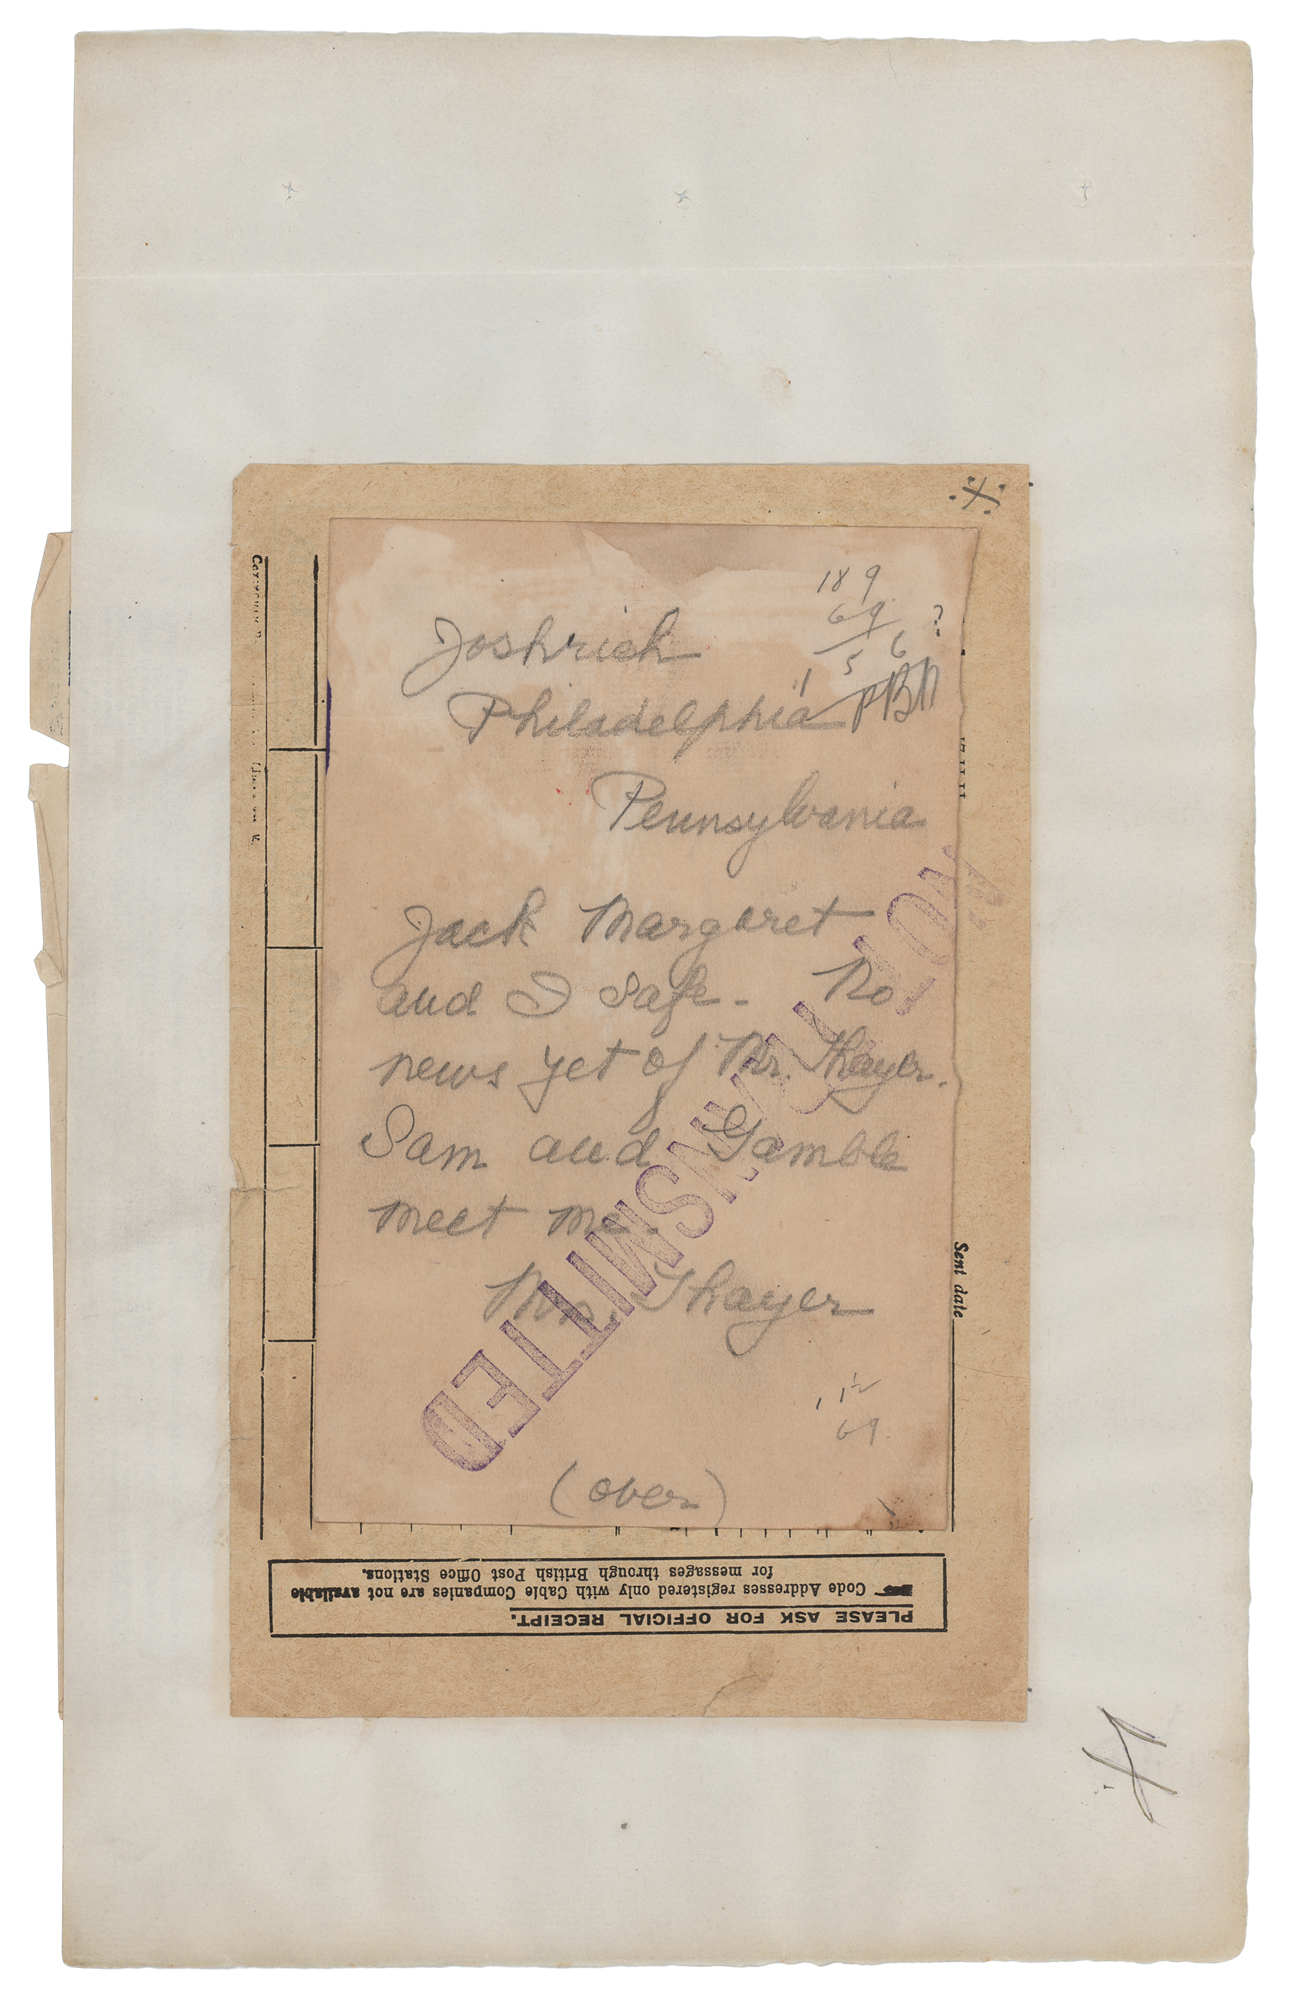 189
69
?
6
5
Joshrich
1
Philadelphia PBN
Pennsylvania
Jack Margaret
and I safe. No
news yet of Mr. Thayer.
Sam and Gamble
meet me.
Mrs. Thayer
NOT TRANSMITTED
69
(over)
Sent date
PLEASE ASK FOR OFFICIAL RECEIPT.
Code Addresses registered only with Cable Companies are not available
for messages through British Post Office Stations.